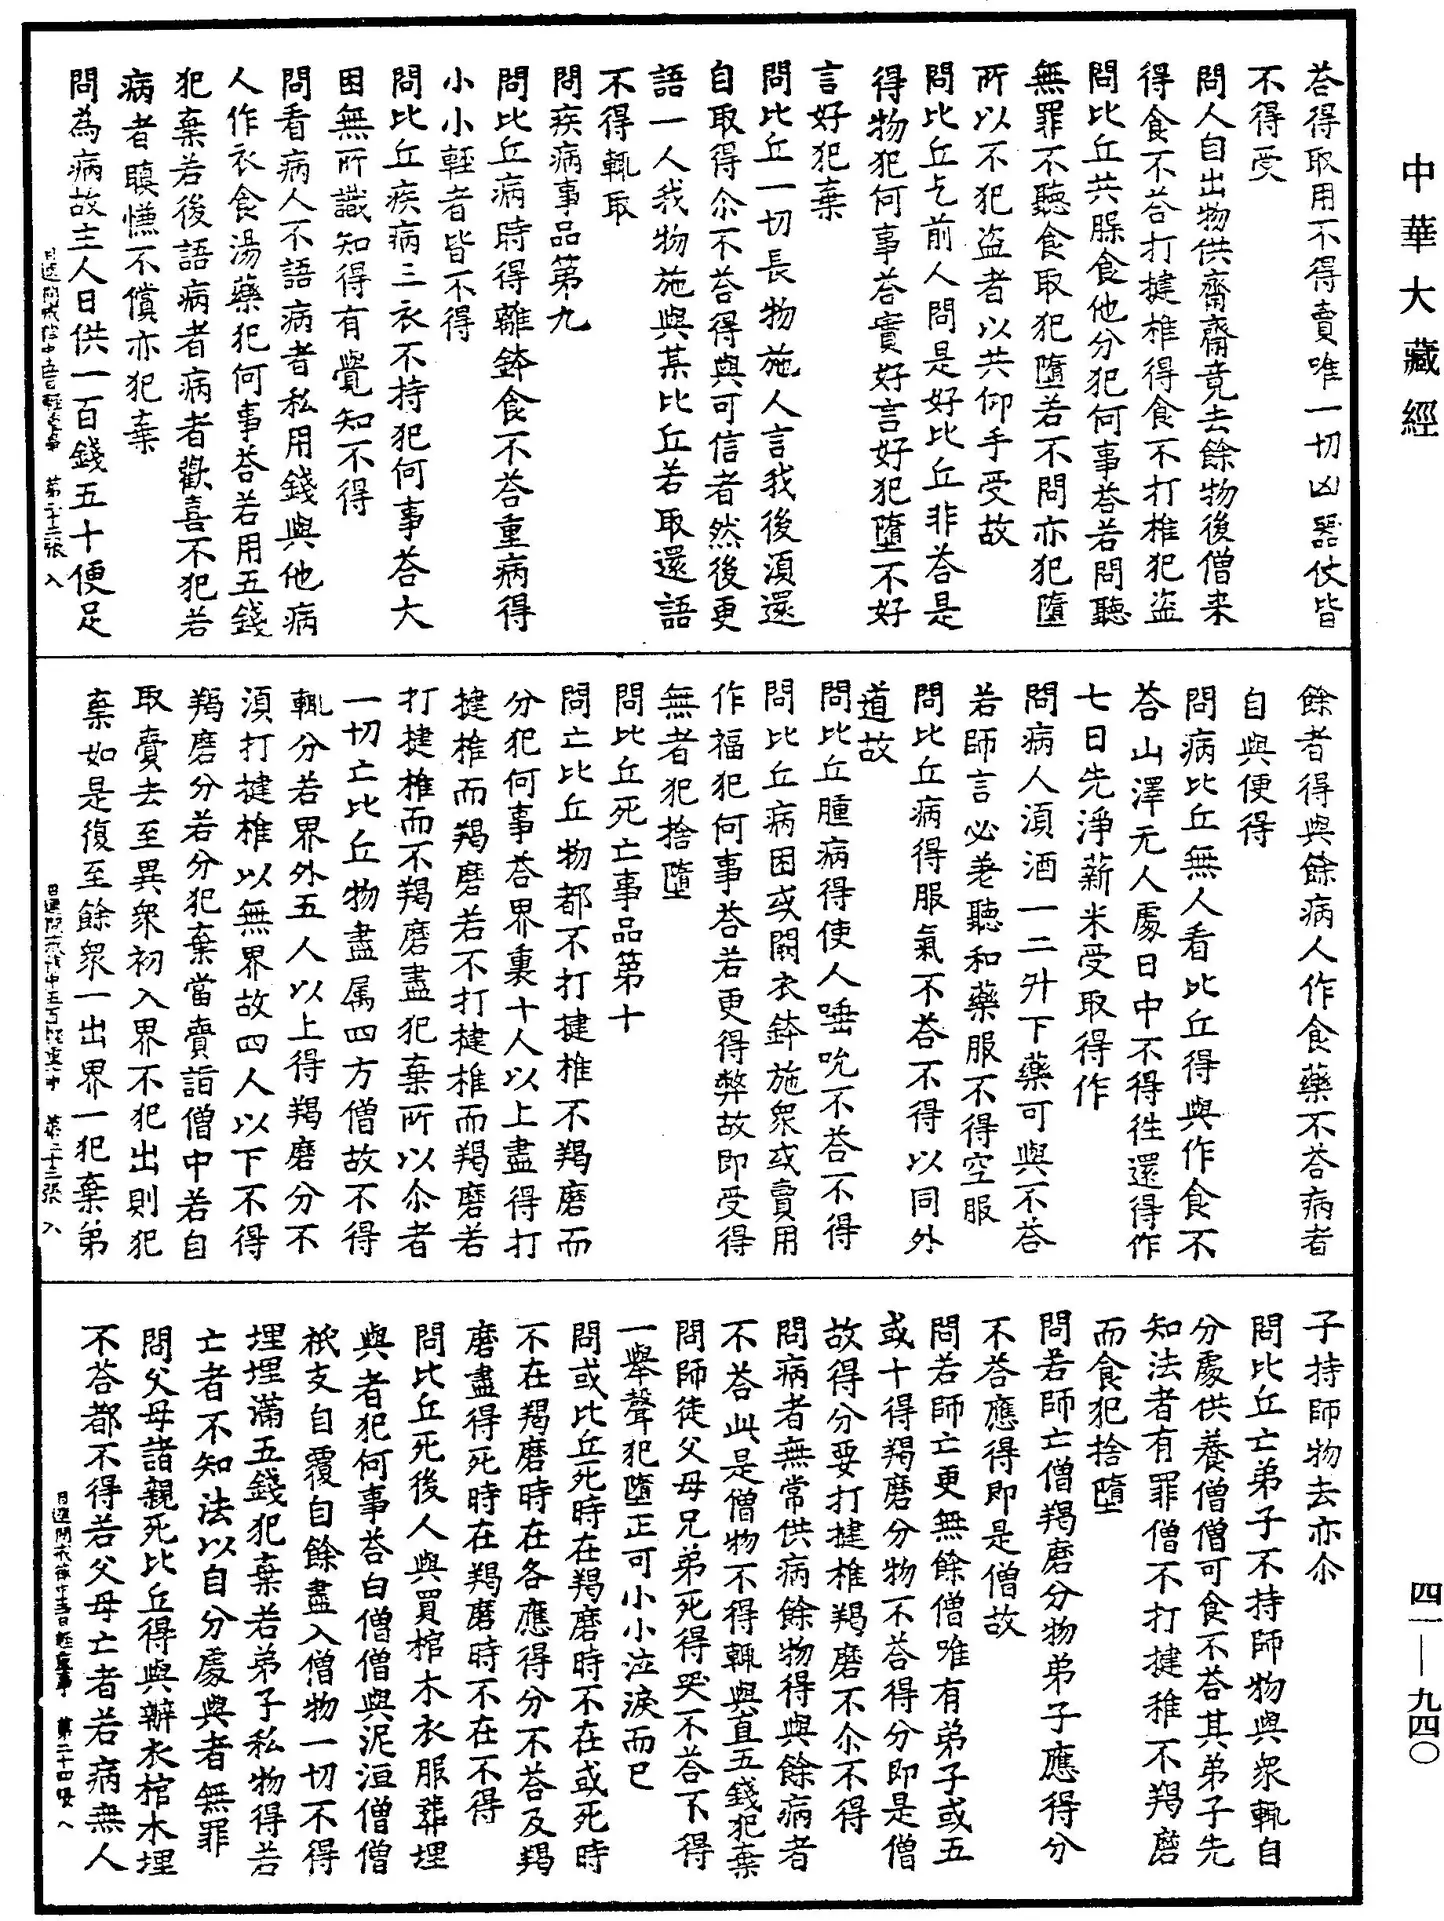 中華大藏經
荅得取用不得賣唯一切凶器仗皆
不得受
問人自出物供齋齋竟去餘物後僧来
得食不荅打揵椎得食不打椎犯盜
問比丘共䐗食他分犯何事荅若問聽
無罪不聽食取犯墮若不問亦犯墮
所以不犯盜者以共仰手受故
問比丘乞前人問是好比丘非荅是
得物犯何事荅實好言好犯墮不好
言好犯棄
問比丘一切長物施人言我後湏還
自取得尒不荅得與可信者然後更
語一人我物施與某比丘若取還語
不得輒取
問疾病事品第九
問比丘病時得離鉢食不荅重病得
小小輕者皆不得
問比丘疾病三衣不持犯何事荅大
困無所識知得有覺知不得
問看病人不語病者私用錢與他病
人作衣食湯藥犯何事荅若用五錢
犯棄若後語病者病者歡喜不犯若
病者瞋慊不償亦犯棄
問為病故主人日供一百錢五十便足
餘者得與餘病人作食藥不荅病者
自與便得
問病比丘無人看比丘得與作食不
荅山澤无人處日中不得徃還得作
七日先淨薪米受取得作
問病人湏酒一二升下藥可與不荅
若師言必老聽和藥服不得空服
問比丘病得服氣不荅不得以同外
道故
問比丘腫病得使人唾呪不荅不得
問比丘病困或闕衣鉢施衆或賣用
作福犯何事荅若更得弊故即受得
無者犯捨墮
問比丘死亡事品第十
問亡比丘物都不打揵椎不羯磨而
分犯何事荅界裏十人以上盡得打
揵椎而羯磨若不打揵椎而羯磨若
打揵椎而不羯磨盡犯棄所以尒者
一切亡比丘物盡属四方僧故不得
輒分若界外五人以上得羯磨分不
湏打揵椎以無界故四人以下不得
羯磨分若分犯棄當賣詣僧中若自
取賣去至異衆初入界不犯出則犯
棄如是復至餘衆一出界一犯棄弟
子持師物去亦尒
問比丘亡弟子不持師物與衆輒自
分處供養僧僧可食不荅其弟子先
知法者有罪僧不打揵稚不羯磨
而食犯捨墮
問若師亡僧羯磨分物弟子應得分
不荅應得即是僧故
問若師亡更無餘僧唯有弟子或五
或十得羯磨分物不荅得分即是僧
故得分要打揵椎羯磨不尒不得
問病者無常供病餘物得與餘病者
不荅此是僧物不得輒與直五錢犯棄
問師徒父母兄弟死得哭不荅不得
一舉聲犯墮正可小小泣淚而已
問或比丘死時在羯磨時不在或死時
不在羯磨時在各應得分不荅及羯
磨盡得死時在羯磨時不在不得
問比丘死後人與買棺木衣服葬埋
與者犯何事荅白僧僧與泥洹僧僧
祇支自覆自餘盡入僧物一切不得
埋埋滿五錢犯棄若弟子私物得若
亡者不知法以自分處與者無罪
問父母諸親死比丘得與辦衣棺木埋
不荅都不得若父母亡者若病無人
四一—九四〇